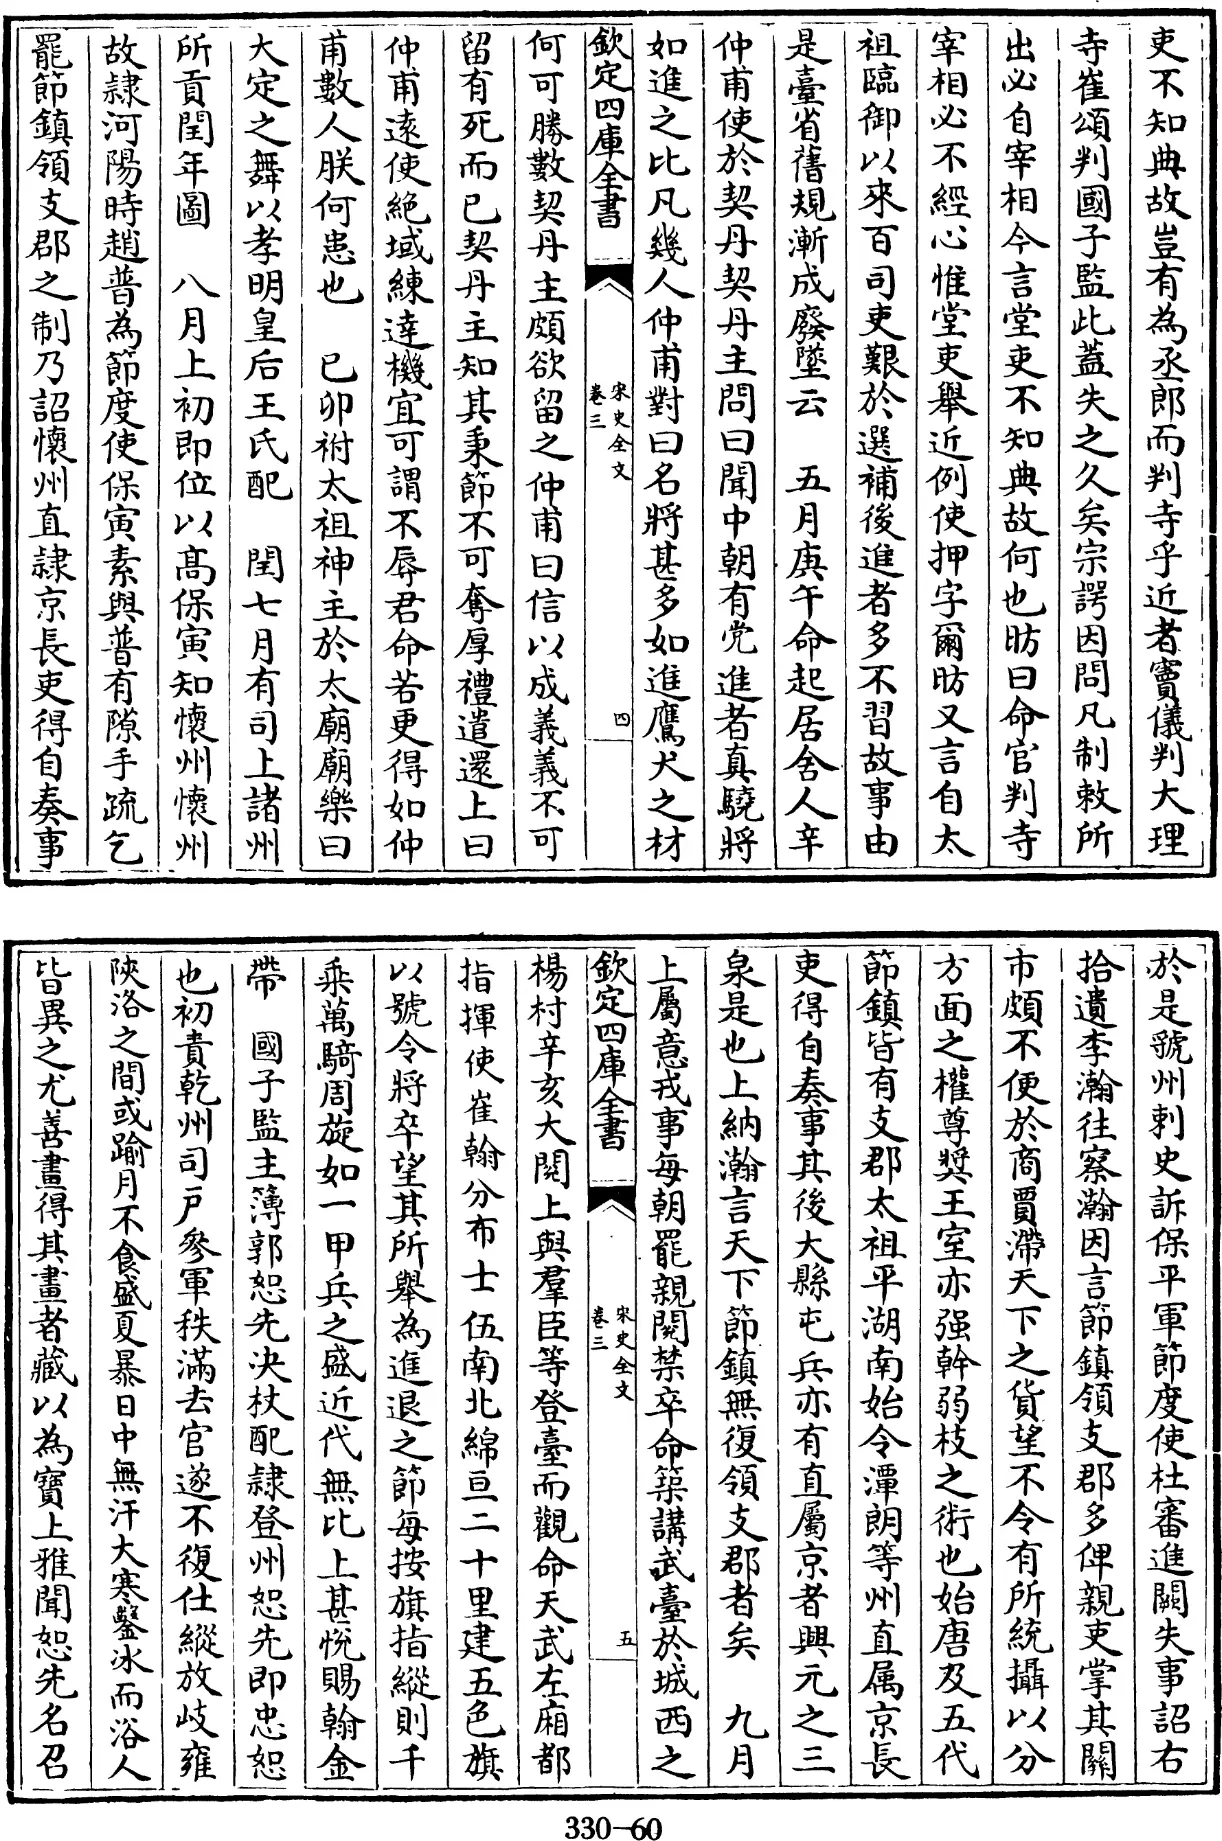 吏不知典故豈有為丞郎而判寺乎近者竇儀判大理
寺崔頌判國子監此蓋失之久矣宗諤因問凡制敕所
出必自宰相今言堂吏不知典故何也昉曰命官判寺
宰相必不經心惟堂吏舉近例使押字爾昉又言自太
祖臨御以來百司吏艱於選補後進者多不習故事由
是臺省舊規漸成廢墜云　五月庚午命起居舍人辛
仲甫使於契丹契丹主問曰聞中朝有党進者真驍將
如進之比凡幾人仲甫對曰名將甚多如進鷹犬之材
欽定四庫全書　宋史全文卷三　四
何可勝數契丹主頗欲留之仲甫曰信以成義義不可
留有死而已契丹主知其秉節不可奪厚禮遣還上曰
仲甫遠使絶域練達機宜可謂不辱君命若更得如仲
甫數人朕何患也　己卯祔太祖神主於太廟廟樂曰
大定之舞以孝明皇后王氏配　閏七月有司上諸州
所貢閏年圖　八月上初即位以髙保寅知懷州懷州
故隷河陽時趙普為節度使保寅素與普有隙手疏乞
罷節鎮領支郡之制乃詔懷州直隷京長吏得自奏事
於是虢州刺史訴保平軍節度使杜審進闕失事詔右
拾遺李瀚往察瀚因言節鎮領支郡多俾親吏掌其關
市頗不便於商賈滯天下之貨望不令有所統攝以分
方面之權尊奬王室亦强幹弱枝之術也始唐及五代
節鎮皆有支郡太祖平湖南始令潭朗等州直属京長
吏得自奏事其後大縣屯兵亦有直屬京者興元之三
泉是也上納瀚言天下節鎮無復領支郡者矣　九月
上屬意戎事每朝罷親閱禁卒命築講武臺於城西之
欽定四庫全書　宋史全文卷三　五
楊村辛亥大閱上與羣臣等登臺而觀命天武左廂都
指揮使崔翰分布士伍南北綿亘二十里建五色旗
以號令將卒望其所舉為進退之節每按旗指縱則千
乘萬騎周旋如一甲兵之盛近代無比上甚悅賜翰金
帶　國子監主簿郭恕先決杖配隷登州恕先即忠恕
也初責乾州司戸參軍秩滿去官遂不復仕縱放岐雍
陜洛之間或踰月不食盛夏暴日中無汗大寒鑿冰而浴人
皆異之尤善畫得其畫者藏以為寶上雅聞恕先名召
330-60